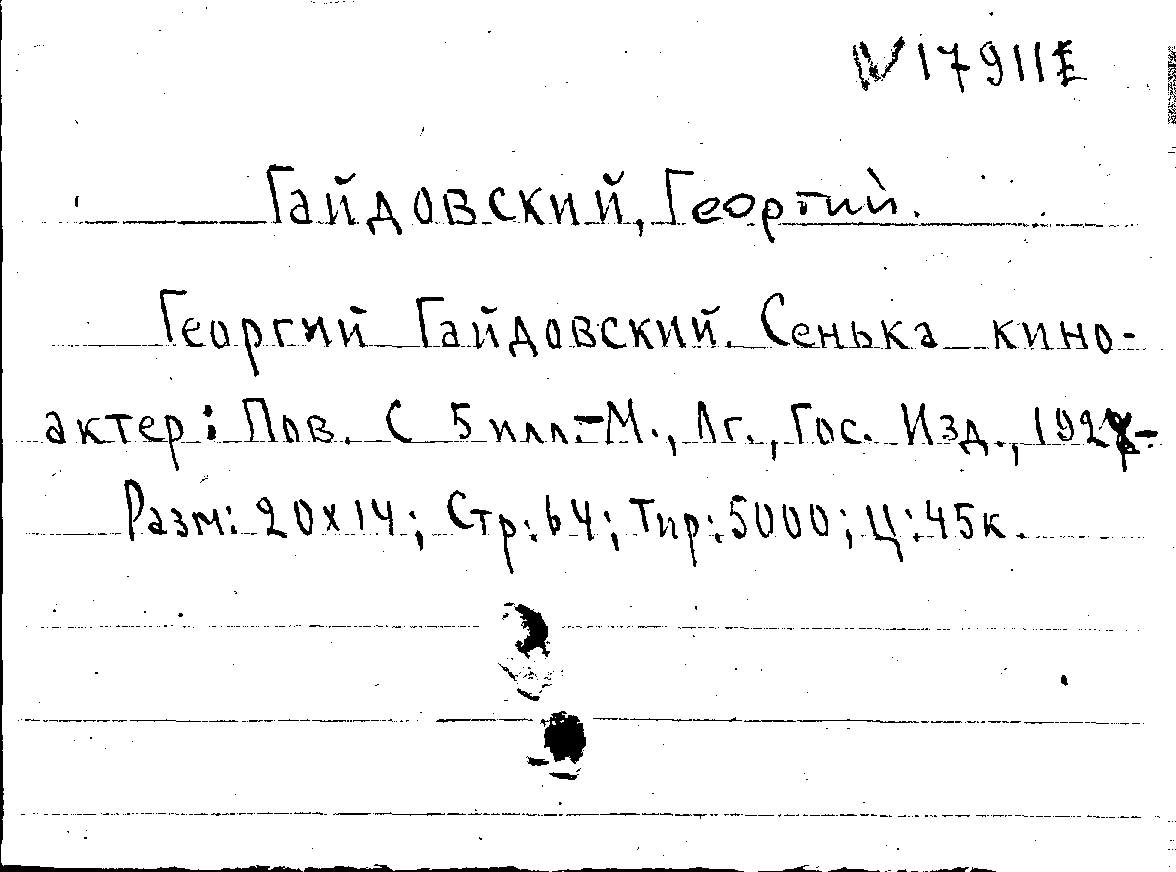 N 17911E
Гайдовский, Георгий.
Георгий Гайдовский. Сенька кино-
актер: Пов. С 5 илл.-М., Лг., Гос. Изд.,
Разм: 20х14; Стр: 64; Тир: 5000; Ц: 45к.